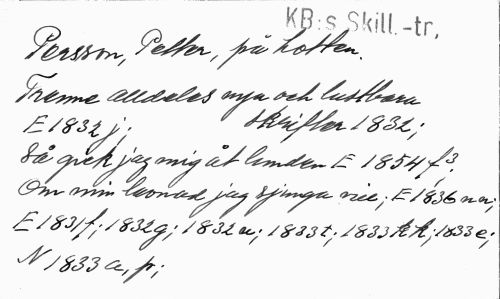 KB:s Skill.-tr,
Persson, Petter, på hotten.
Trenne alldeles nya och lustbara
E 1832 j; skrifter 1832;
Så gick jag mig åt lunden E 1854 f³;
Om min levnad jag sjunga vill; E 1836 nn;
E 1831 f; 1832 g; 1832 u; 1833 t; 1833 kk; 1833 e;
N 1833 a, p;